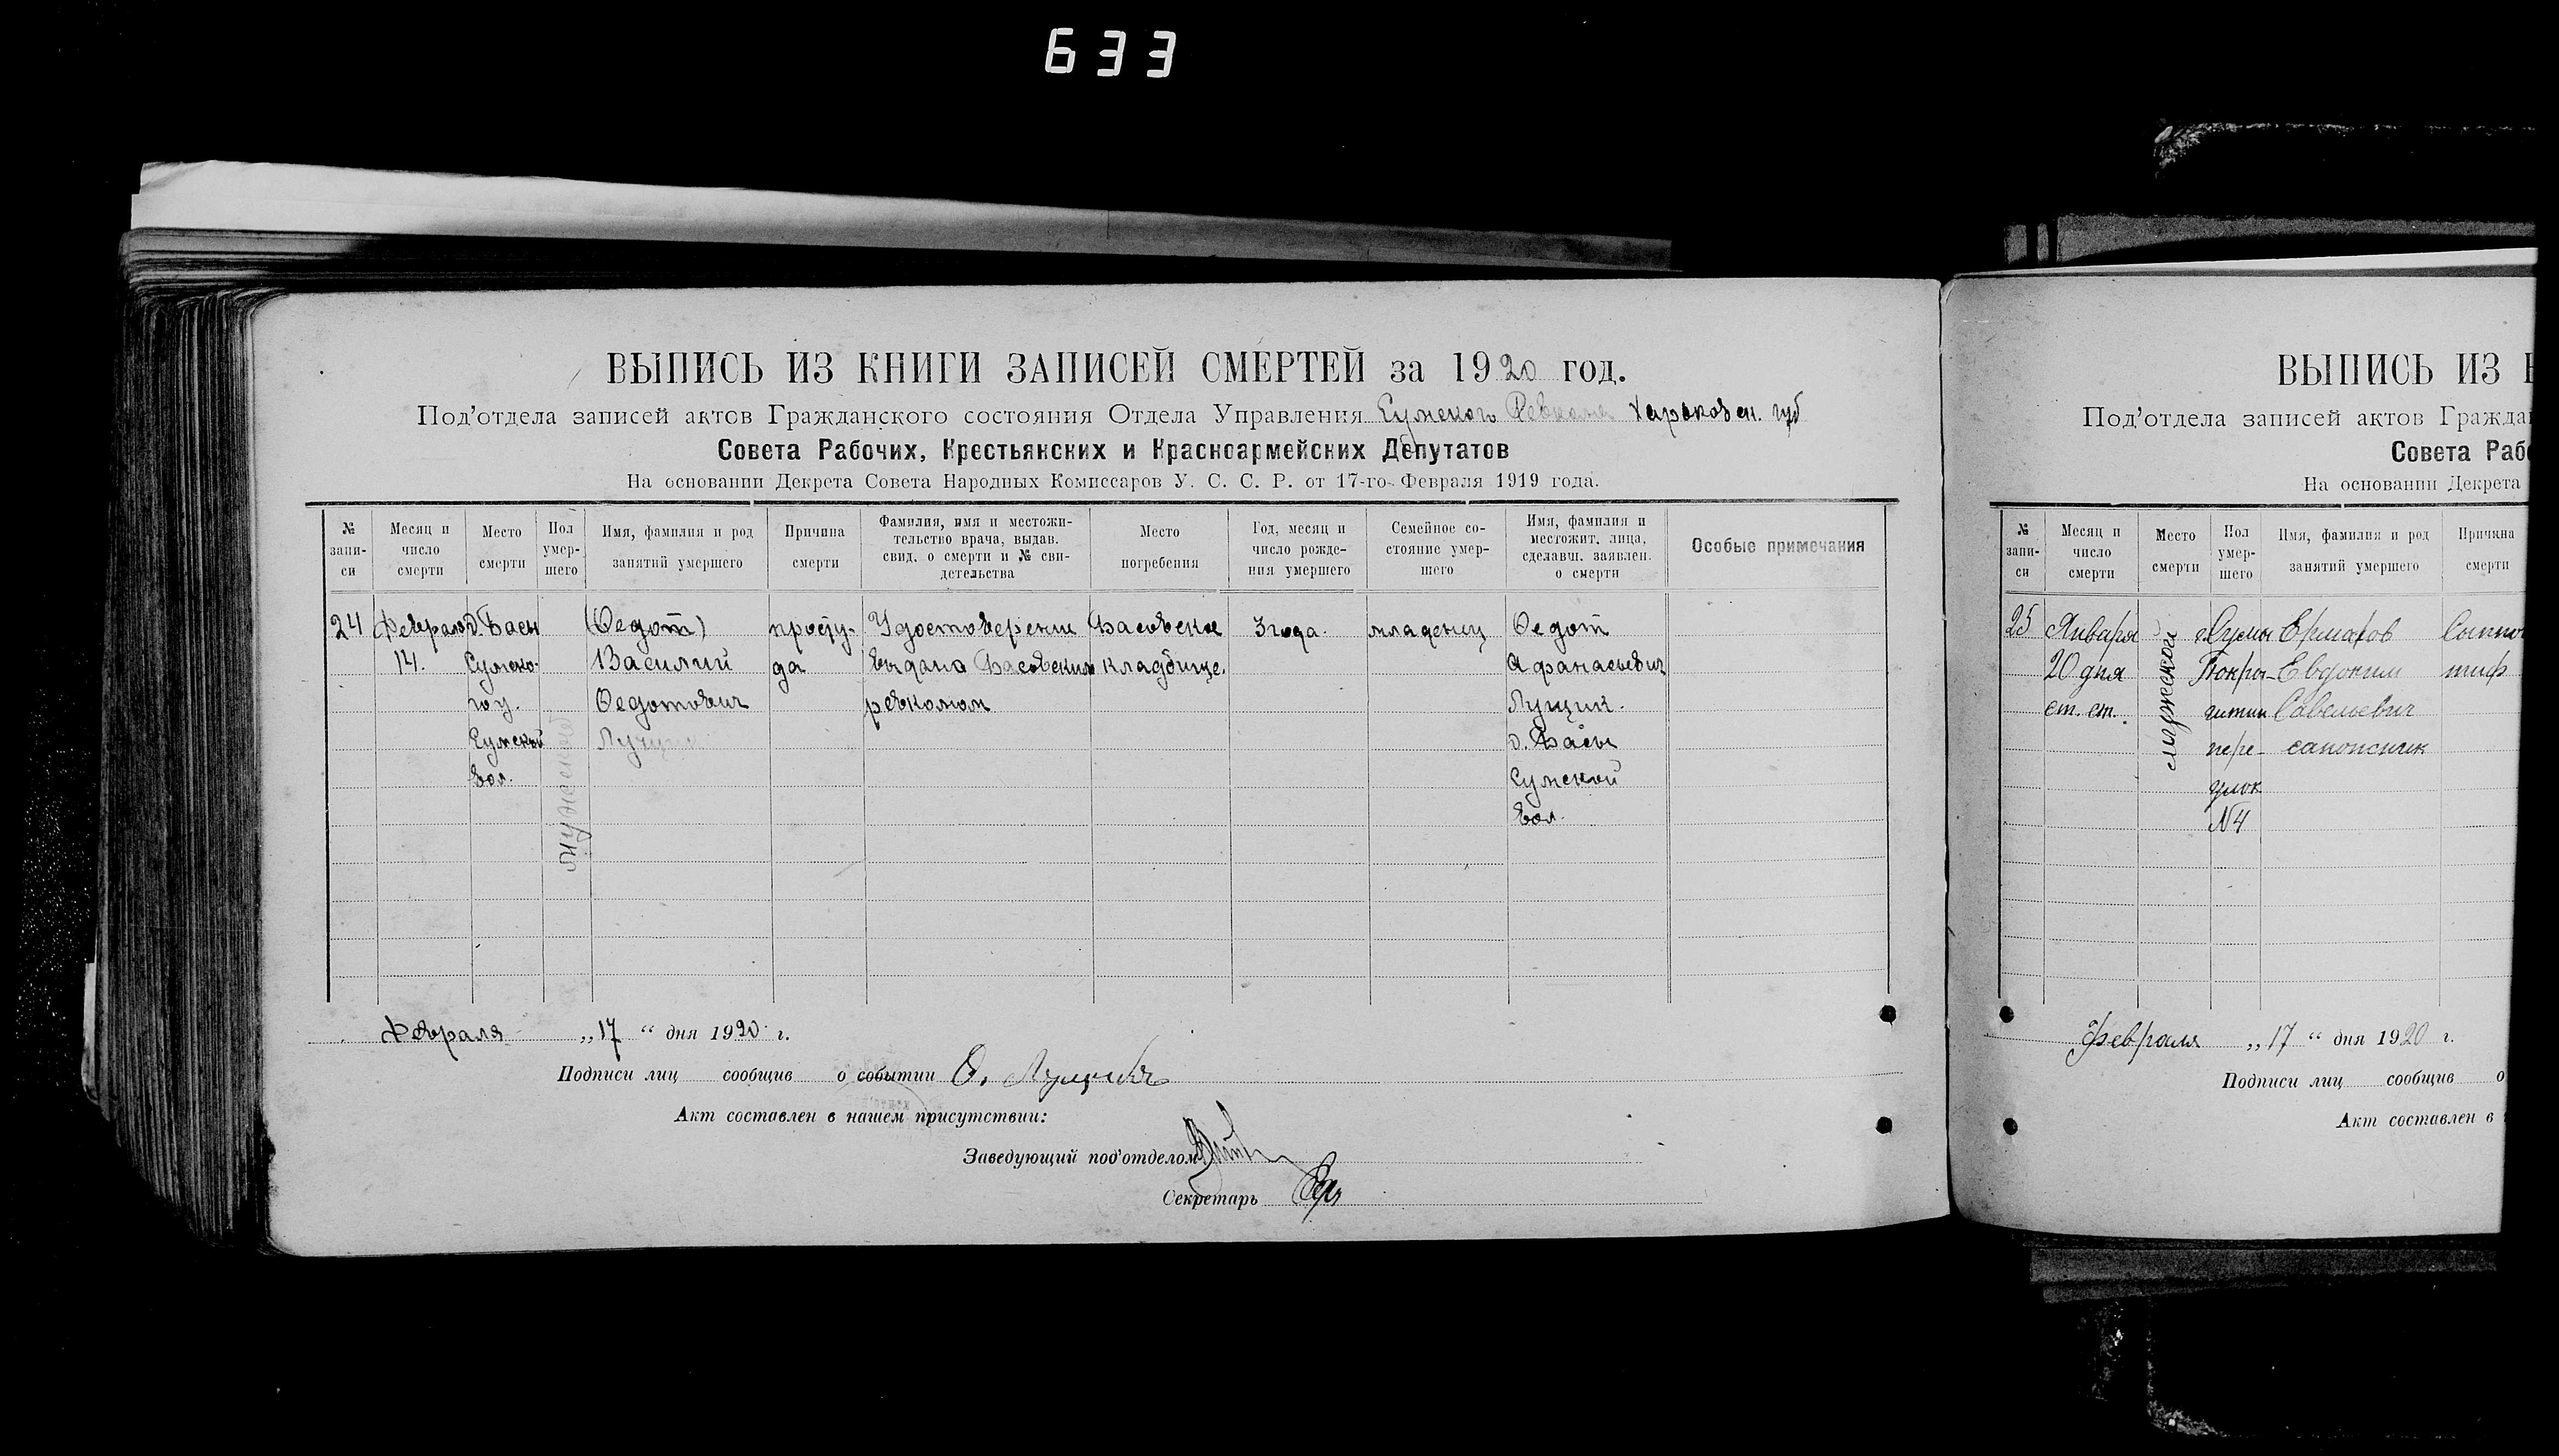 633
ВЫПИСЬ ИЗ КНИГИ ЗАПИСЕЙ СМЕРТЕЙ за 1920 год.
Под'отдела записей актов Гражданского состояния Отдела Управления Сумского Ревкома Харьковск. губ
Совета Рабочих, Крестьянских и Красноармейских Депутатов
На основании Декрета Совета Народных Комиссаров У. С. С. Р. от 17-го Февраля 1919 года.
№ запи-си
Месяц и число смерти
Место смерти
Пол умер-шего
Имя, фамилия и род занятий умершего
Причина смерти
Фамилия, имя и местожи-тельство врача, выдав. свид. о смерти и № сви-детельства
Место погребения
Год, месяц и число рожде-ния умершего
Семейное со-стояние умер-шего
Имя, фамилия и местожит. лица, сделавш. заявлен. о смерти
Особые примечания
24
Февраля
14.
д. Басы
Сумско-
го у.
Сумской
вол.
мужской
(Ѳедот)
Василий
Ѳедотович
просту-
да
Удостоверение
выдано Басовским
ревкомом
Басовское
кладбище.
3 года.
младенец
Ѳедот
Афанасьевич
Лущик.
д. Басы
Сумской
вол.
Февраля „17“ дня 1920 г.
Подписи лиц сообщив о событии Ѳ.
Акт составлен в нашем присутствии:
Заведующий под'отделом
Секретарь
ВЫПИСЬ ИЗ
Под'отдела записей актов Граждан
Совета Рабо
На основании Декрета
№ запи-си
Месяц и число смерти
Место смерти
Пол умер-шего
Имя, фамилия и род занятий умершего
Причина смерти
25
Января
20 дня
ст. ст.
мужской
г. Сумы
Покро-
пере-
улок
№4
Ермаков
Евдоким
Савельевич
сапожник
Сыпной
тиф
Февраля „17“ дня 1920 г.
Подписи лиц сообщив о
Акт составлен в